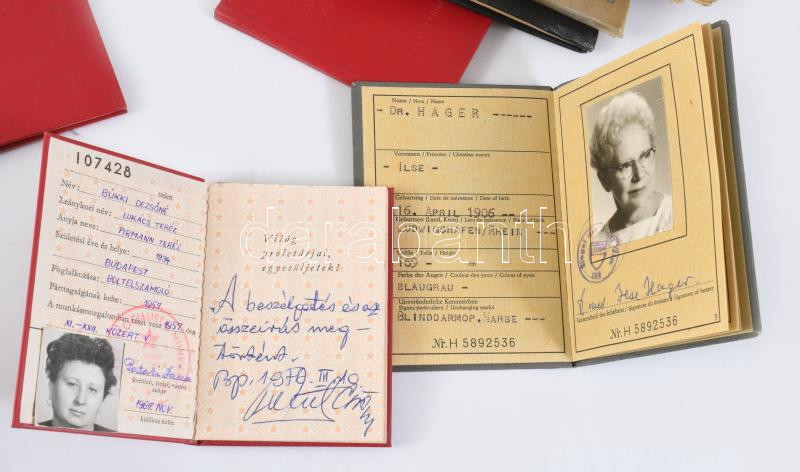 107428
szám
Név: BÜKKI DEZSŐNÉ
Leánykori név: LUKÁCS TERÉZ
Anyja neve: PIRMANN TERÉZ
Születési éve és helye: 1934
BUDAPEST
Foglalkozása: BOLTELSZÁMOLÓ
Párttagságának kelte: 1957
A munkásmozgalomban részt vesz 1957 óta
XI.-XXII. KÖZÉRT V.
kerületi, járási, városi
titkár
1967. NOV.
kiállítás kelte
Világ
proletárjai,
egyesüljetek!
A beszélgetés és az
összeírás meg-
történt.
Bp. 1970. III. 19.
Name / Nom / Name
-DR. HAGER ------
Vornamen / Prénoms / Christian names
- ILSE -
Geburtstag / Date de naissance / Date of birth
16. APRIL 1906 --
Geburtsort (Land, Kreis) / Lieu de naissance / Place of birth
LUDWIGSHAFEN/RHEIN
Größe / Taille / Height
Farbe der Augen / Couleur des yeux / Colour of eyes
BLAUGRAU -
Unveränderliche Kennzeichen
Signes particuliers / Unchanging marks
BLINDDARMOP.NARBE ---
Nr. H 5892536
Unterschrift des Inhabers / Signature du titulaire / Signature of bearer
Nr. H 5892536
darabanth